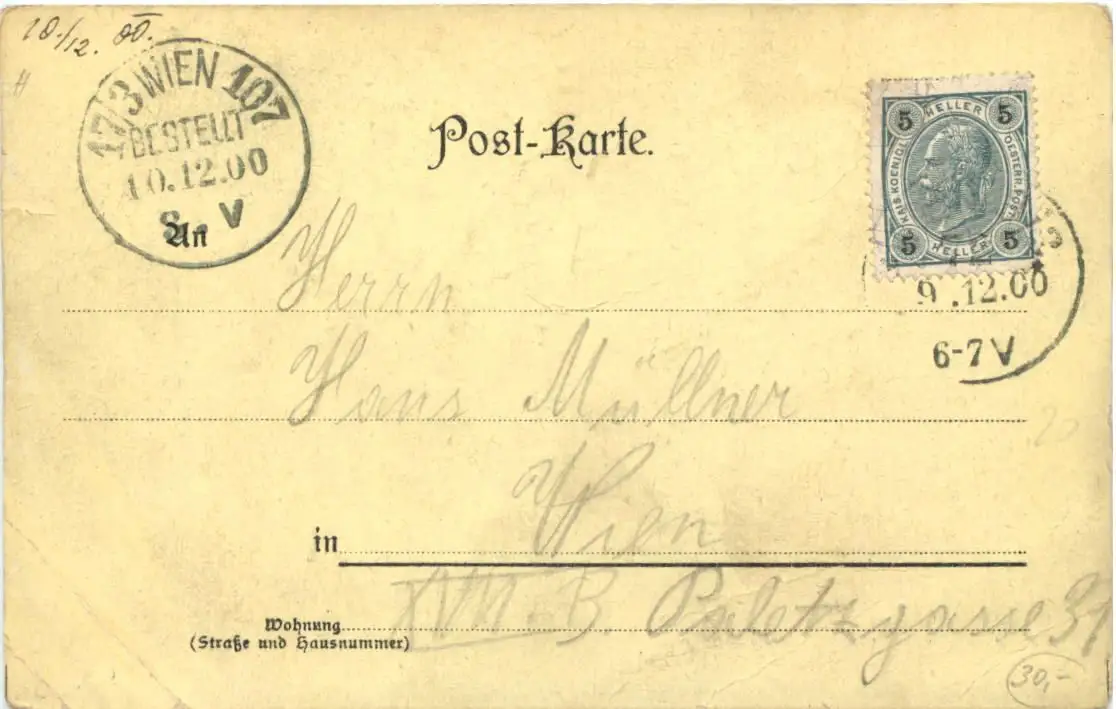 10./12. 00.
17/3 WIEN 107
BESTELLT
10.12.00
8. V
Post-Karte.
5 HELLER 5
KAIS. KOENIGL. OESTERR. POST.
5 HELLER 5
9.12.00
6-7 V
An
Herrn
Hans Müllner
in Wien
XVII. B. Paletzgasse 31
Wohnung
(Straße und Hausnummer)
30,-